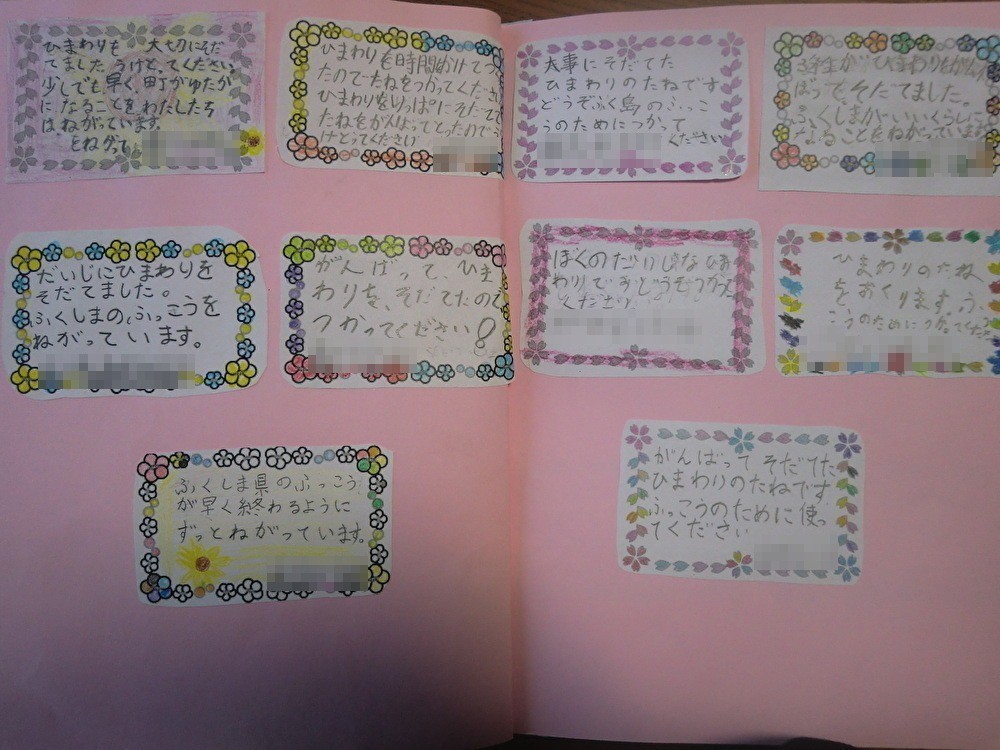 ひまわりを 大切にそだ
てました うけとってください
少しでも早く町がゆたか
になることをわたしたち
はねがっています。
とねがって
ひまわりを時間かけてつ
たのでたねをつかってくださ
ひまわりをりっぱにそだてて
たねをがんばってとったので
けとってください
だいじにひまわりを
そだてました。
ふくしまのふっこうを
ねがっています。
がんばって、ひま
わりを、そだてたので
つかってください!
ふくしま県のふっこう
が早く終わるように
ずっとねがっています。
大事にそだてた
ひまわりのたねです
どうぞふく島のふっこ
うのためにつかって
ください
ひまわりをがん
ばってそだてました。
ふくしまがいい
なることをねがっています
ぼくのだいじなひま
わりですどうぞつかって
ください
ひまわりのたね
をおくります。ふっ
こうのために
がんばってそだてた
ひまわりのたねです
ふっこうのために使っ
てください